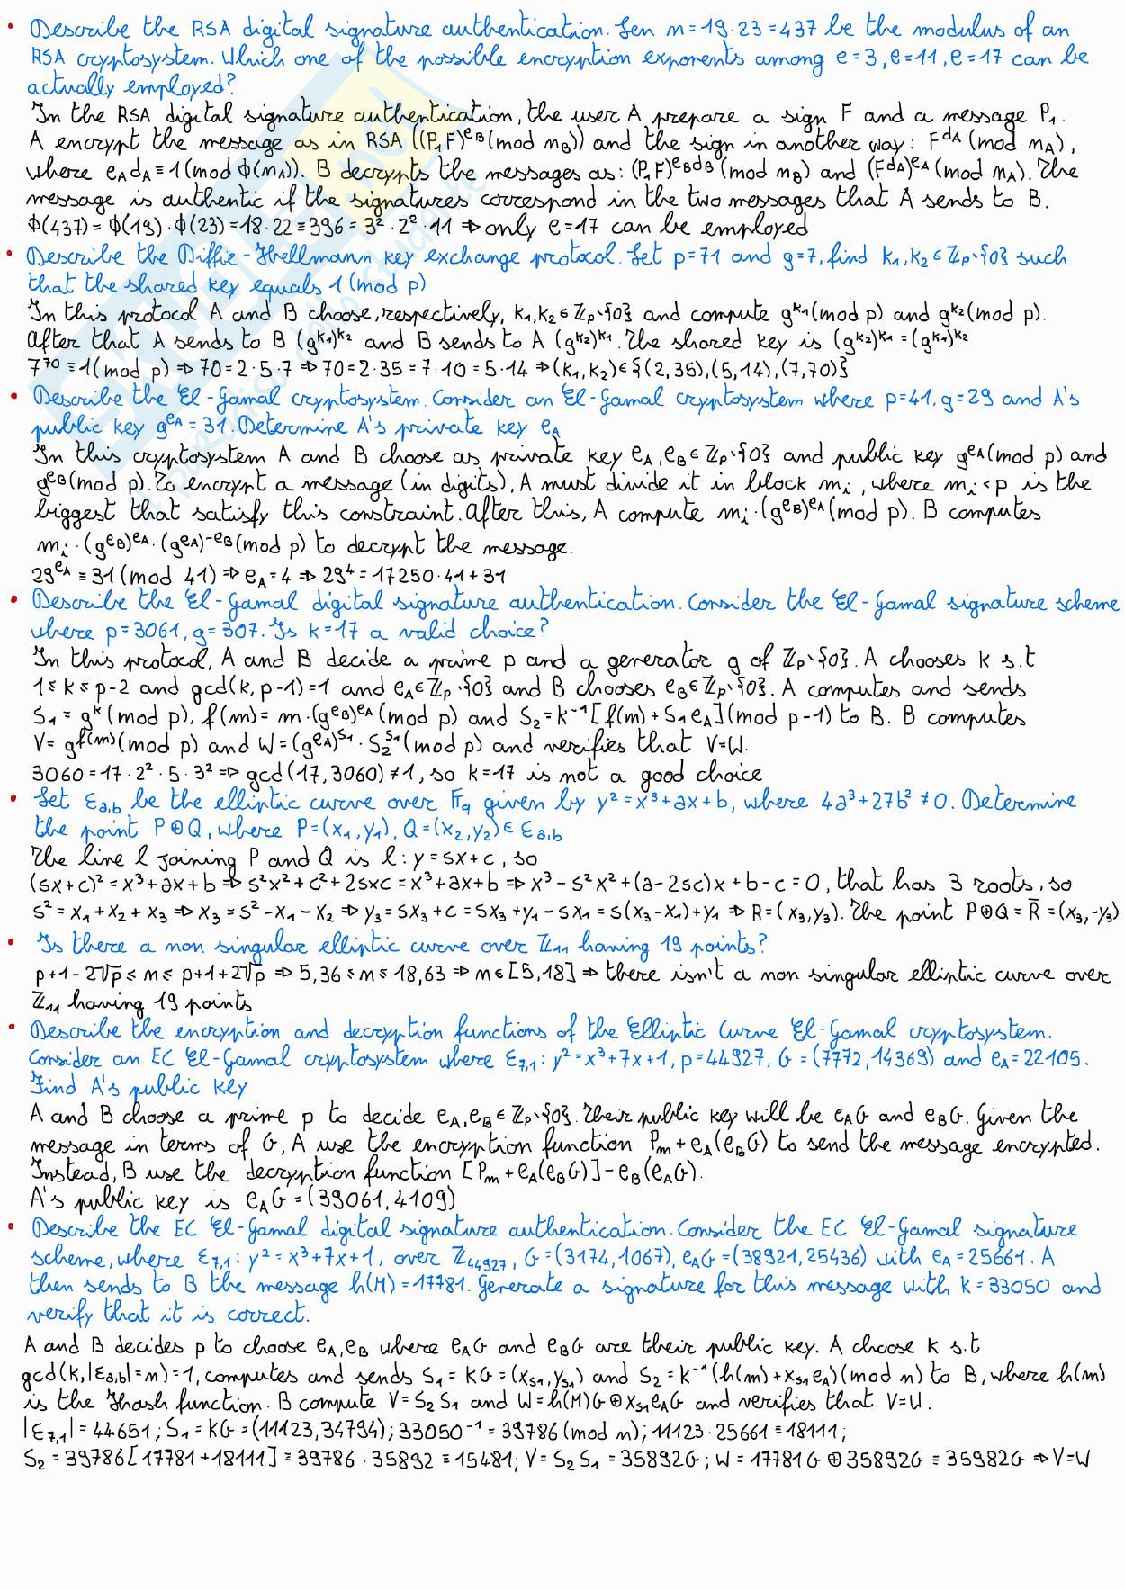 • Describe the RSA digital signature authentication. Sen n=19·23=437 be the modulus of an
RSA cryptosystem. Which one of the possible encryption exponents among e=3, e=11, e=17 can be
actually employed?
In the RSA digital signature authentication, the user A prepare a sign F and a message P₁.
A encrypt the message as in RSA ((P₁F)^eB (mod nB)) and the sign in another way: F^dA (mod nA),
where eA dA ≡ 1 (mod φ(nA)). B decrypts the messages as: (P₁F)^eBdB (mod nB) and (F^dA)^eA (mod nA). The
message is authentic if the signatures correspond in the two messages that A sends to B.
φ(437) = φ(19)·φ(23) = 18·22 = 396 = 3²·2²·11 ⇒ only e=17 can be employed
• Describe the Diffie-Hellmann key exchange protocol. Set p=71 and g=7, find k₁,k₂ ∈ ℤp∖{0} such
that the shared key equals 1 (mod p)
In this protocol A and B choose, respectively, k₁,k₂ ∈ ℤp∖{0} and compute g^k₁ (mod p) and g^k₂ (mod p).
After that A sends to B (g^k₁)^k₂ and B sends to A (g^k₂)^k₁. The shared key is (g^k₂)^k₁ = (g^k₁)^k₂
7⁷⁰ ≡ 1 (mod p) ⇒ 70=2·5·7 ⇒ 70=2·35=7·10=5·14 ⇒ (k₁,k₂) ∈ {(2,35),(5,14),(7,70)}
• Describe the El-Gamal cryptosystem. Consider an El-Gamal cryptosystem where p=41, g=29 and A's
public key g^eA = 31. Determine A's private key eA
In this cryptosystem A and B choose as private key eA, eB ∈ ℤp∖{0} and public key g^eA (mod p) and
g^eB (mod p). To encrypt a message (in digits), A must divide it in block mᵢ, where mᵢ<p is the
biggest that satisfy this constraint. After this, A compute mᵢ·(g^eB)^eA (mod p). B computes
mᵢ·(g^eB)^eA·(g^eA)^-eB (mod p) to decrypt the message.
29^eA ≡ 31 (mod 41) ⇒ eA=4 ⇒ 29⁴=17250·41+31
• Describe the El-Gamal digital signature authentication. Consider the El-Gamal signature scheme
where p=3061, g=307. Is k=17 a valid choice?
In this protocol, A and B decide a prime p and a generator g of ℤp∖{0}. A chooses k s.t
1≤k≤p-2 and gcd(k,p-1)=1 and eA ∈ ℤp∖{0} and B chooses eB ∈ ℤp∖{0}. A computes and sends
S₁ = g^k (mod p), f(m) = m·(g^eB)^eA (mod p) and S₂ = k⁻¹[f(m)+S₁eA](mod p-1) to B. B computes
V = g^f(m) (mod p) and W = (g^eA)^S₁·S₂^S₁ (mod p) and verifies that V=W.
3060=17·2²·5·3² ⇒ gcd(17,3060)≠1, so k=17 is not a good choice
• Set Ea,b be the elliptic curve over 𝔽q given by y²=x³+ax+b, where 4a³+27b²≠0. Determine
the point P⊕Q, where P=(x₁,y₁), Q=(x₂,y₂) ∈ Ea,b
The line l joining P and Q is l: y=sx+c, so
(sx+c)²=x³+ax+b ⇒ s²x²+c²+2sxc=x³+ax+b ⇒ x³-s²x²+(a-2sc)x+b-c=0, that has 3 roots, so
s²=x₁+x₂+x₃ ⇒ x₃=s²-x₁-x₂ ⇒ y₃=sx₃+c=sx₃+y₁-sx₁=s(x₃-x₁)+y₁ ⇒ R=(x₃,y₃). The point P⊕Q=R̄=(x₃,-y₃)
• Is there a non singular elliptic curve over ℤ₁₁ having 19 points?
p+1-2√p ≤ m ≤ p+1+2√p ⇒ 5,36 ≤ m ≤ 18,63 ⇒ m∈[5,18] ⇒ there isn't a non singular elliptic curve over
ℤ₁₁ having 19 points
• Describe the encryption and decryption functions of the Elliptic Curve El-Gamal cryptosystem.
Consider an EC El-Gamal cryptosystem where E₇,₁: y²=x³+7x+1, p=44927, G=(7772,14369) and eA=22105.
Find A's public key
A and B choose a prime p to decide eA,eB ∈ ℤp∖{0}. Their public key will be eAG and eBG. Given the
message in terms of G, A use the encryption function Pm+eA(eBG) to send the message encrypted.
Instead, B use the decryption function [Pm+eA(eBG)]-eB(eAG).
A's public key is eAG=(39061,4109)
• Describe the EC El-Gamal digital signature authentication. Consider the EC El-Gamal signature
scheme, where E₇,₁: y²=x³+7x+1, over ℤ₄₄₉₂₇, G=(3174,1067), eAG=(38921,25436) with eA=25661. A
then sends to B the message h(M)=17781. Generate a signature for this message with k=33050 and
verify that it is correct.
A and B decides p to choose eA,eB where eAG and eBG are their public key. A choose k s.t
gcd(k,|Ea,b|=n)=1, computes and sends S₁=kG=(xs₁,ys₁) and S₂=k⁻¹(h(m)+xs₁eA)(mod n) to B, where h(m)
is the Hash function. B compute V=S₂S₁ and W=h(M)G⊕xs₁eAG and verifies that V=W.
|E₇,₁|=44651; S₁=kG=(11123,34794); 33050⁻¹=39786 (mod n); 11123·25661≡18111;
S₂=39786[17781+18111]≡39786·35892≡15481; V=S₂S₁=35892G; W=17781G⊕35892G≡35982G ⇒ V=W